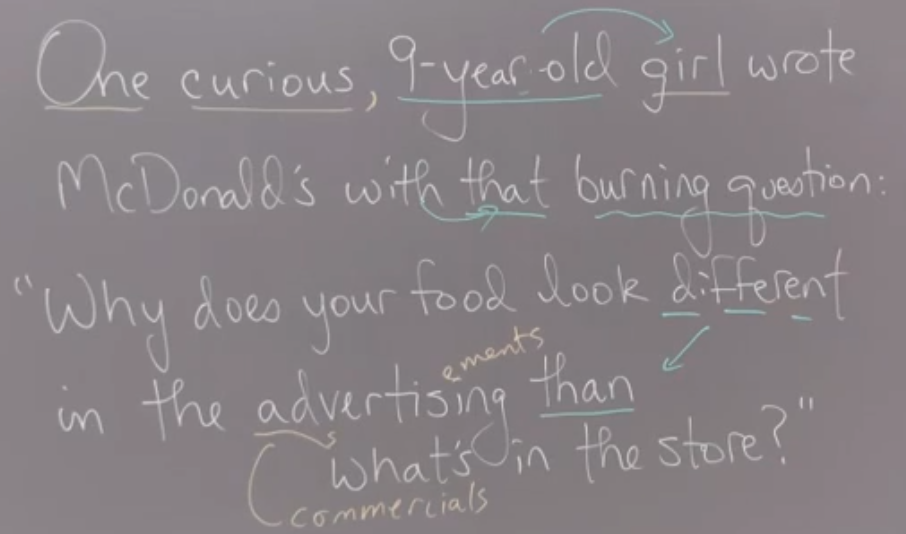 One curious, 9-year-old girl wrote
McDonald's with that burning question:
"Why does your food look different
ements
in the advertising than
what's in the store?"
commercials